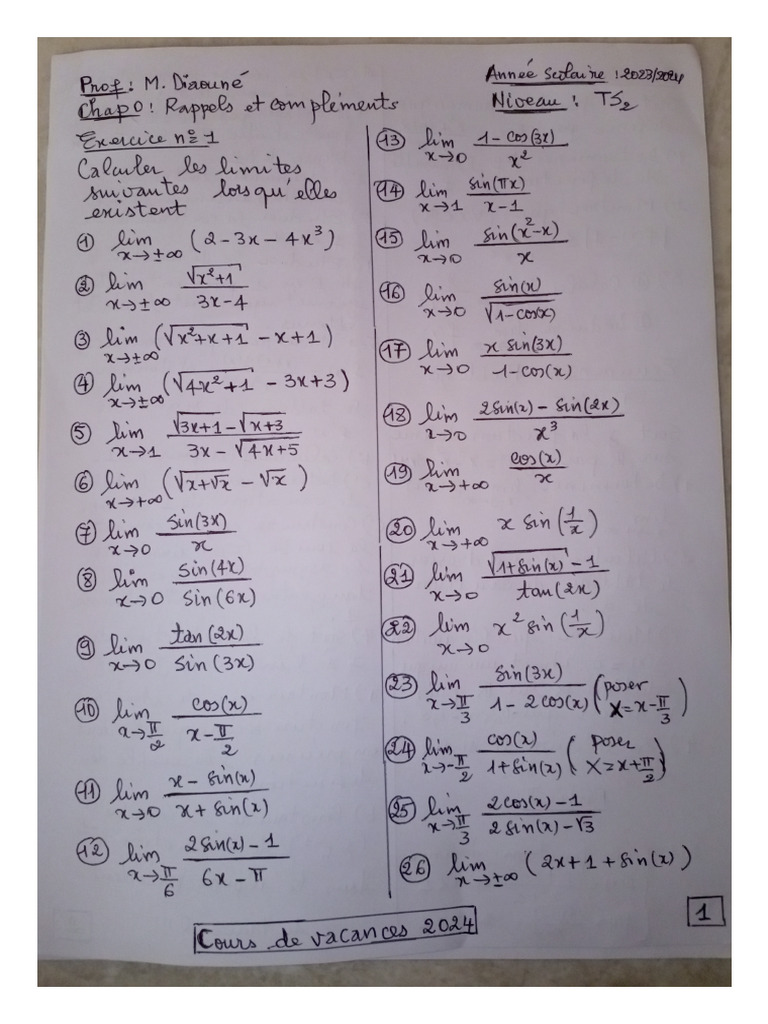 Prof : M. Diaouné
Année scolaire : 2023/2024
Chap0 : Rappels et compléments
Niveau : TS2
Exercice n°1
Calculer les limites
suivantes lorsqu'elles
existent
① lim x→±∞ (2 - 3x - 4x³)
② lim x→±∞ √(x²+1) / (3x-4)
③ lim x→±∞ (√(x²+x+1) - x + 1)
④ lim x→±∞ (√(4x²+1) - 3x + 3)
⑤ lim x→1 (√(3x+1) - √(x+3)) / (3x - √(4x+5))
⑥ lim x→+∞ (√(x+√x) - √x)
⑦ lim x→0 sin(3x) / x
⑧ lim x→0 sin(4x) / sin(6x)
⑨ lim x→0 tan(2x) / sin(3x)
⑩ lim x→π/2 cos(x) / (x - π/2)
⑪ lim x→0 (x - sin(x)) / (x + sin(x))
⑫ lim x→π/6 (2sin(x) - 1) / (6x - π)
⑬ lim x→0 (1 - cos(3x)) / x²
⑭ lim x→1 sin(πx) / (x-1)
⑮ lim x→0 sin(x²-x) / x
⑯ lim x→0 sin(x) / √(1-cos x)
⑰ lim x→0 x sin(3x) / (1-cos(x))
⑱ lim x→0 (2sin(x) - sin(2x)) / x³
⑲ lim x→+∞ cos(x) / x
⑳ lim x→+∞ x sin(1/x)
㉑ lim x→0 (√(1+sin(x)) - 1) / tan(2x)
㉒ lim x→0 x² sin(1/x)
㉓ lim x→π/3 sin(3x) / (1 - 2cos(x)) (poser X = x - π/3)
㉔ lim x→-π/2 cos(x) / (1+sin(x)) (poser X = x + π/2)
㉕ lim x→π/3 (2cos(x) - 1) / (2sin(x) - √3)
㉖ lim x→±∞ (2x + 1 + sin(x))
1
Cours de vacances 2024